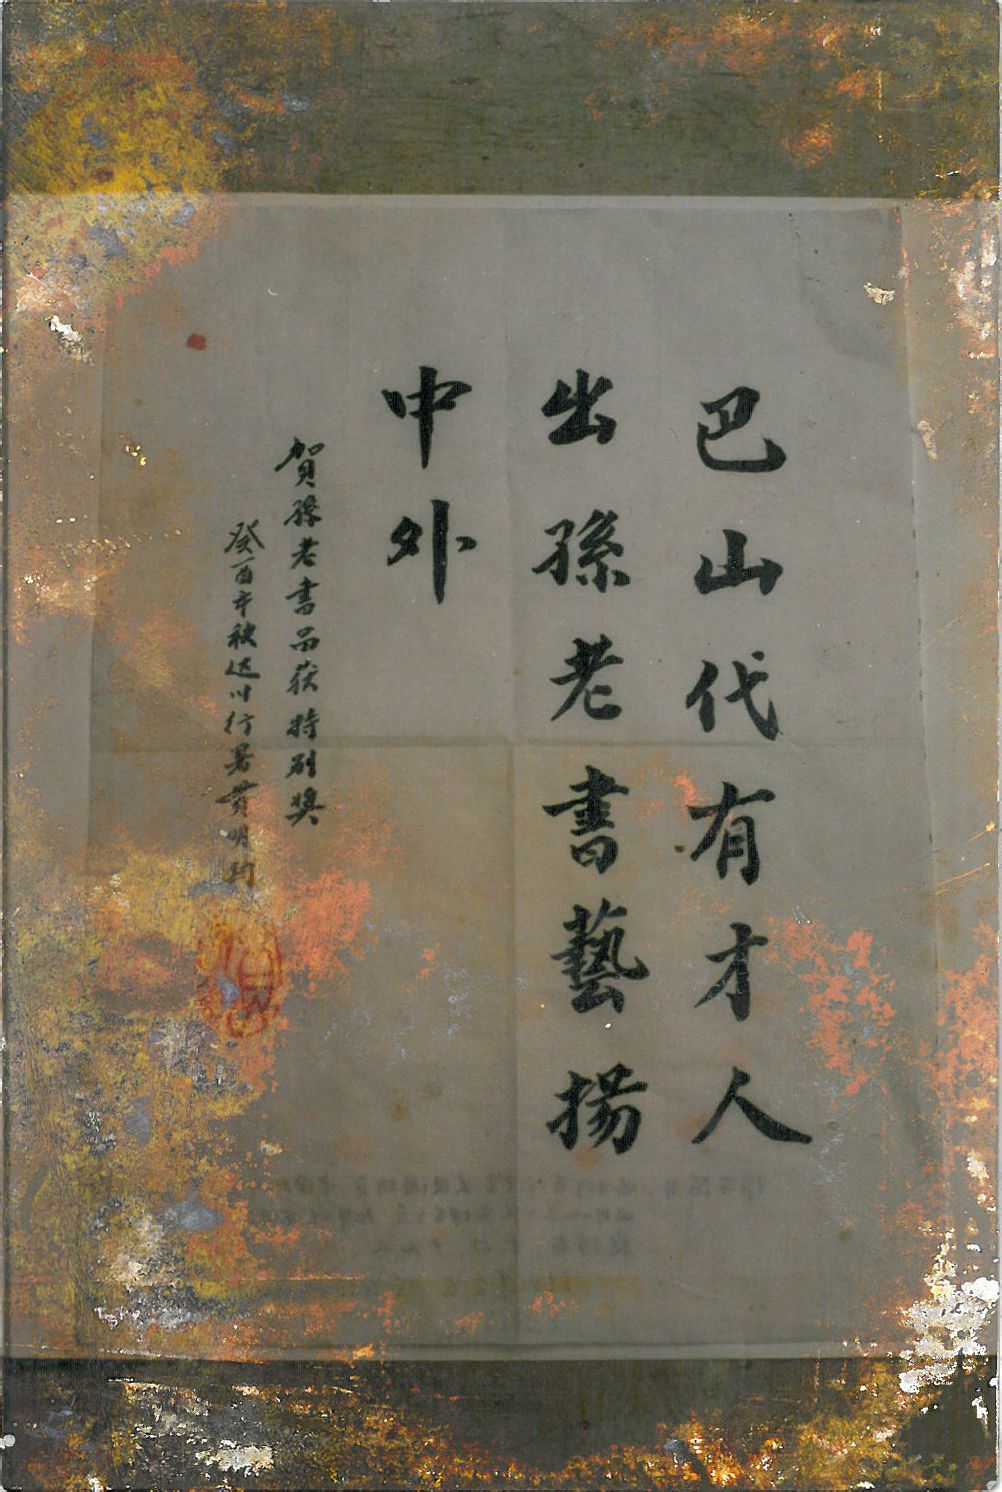 巴山代有才人
出孫老書藝揚
中外
賀孫老書品获特别奬
癸酉年秋达川行署黄明